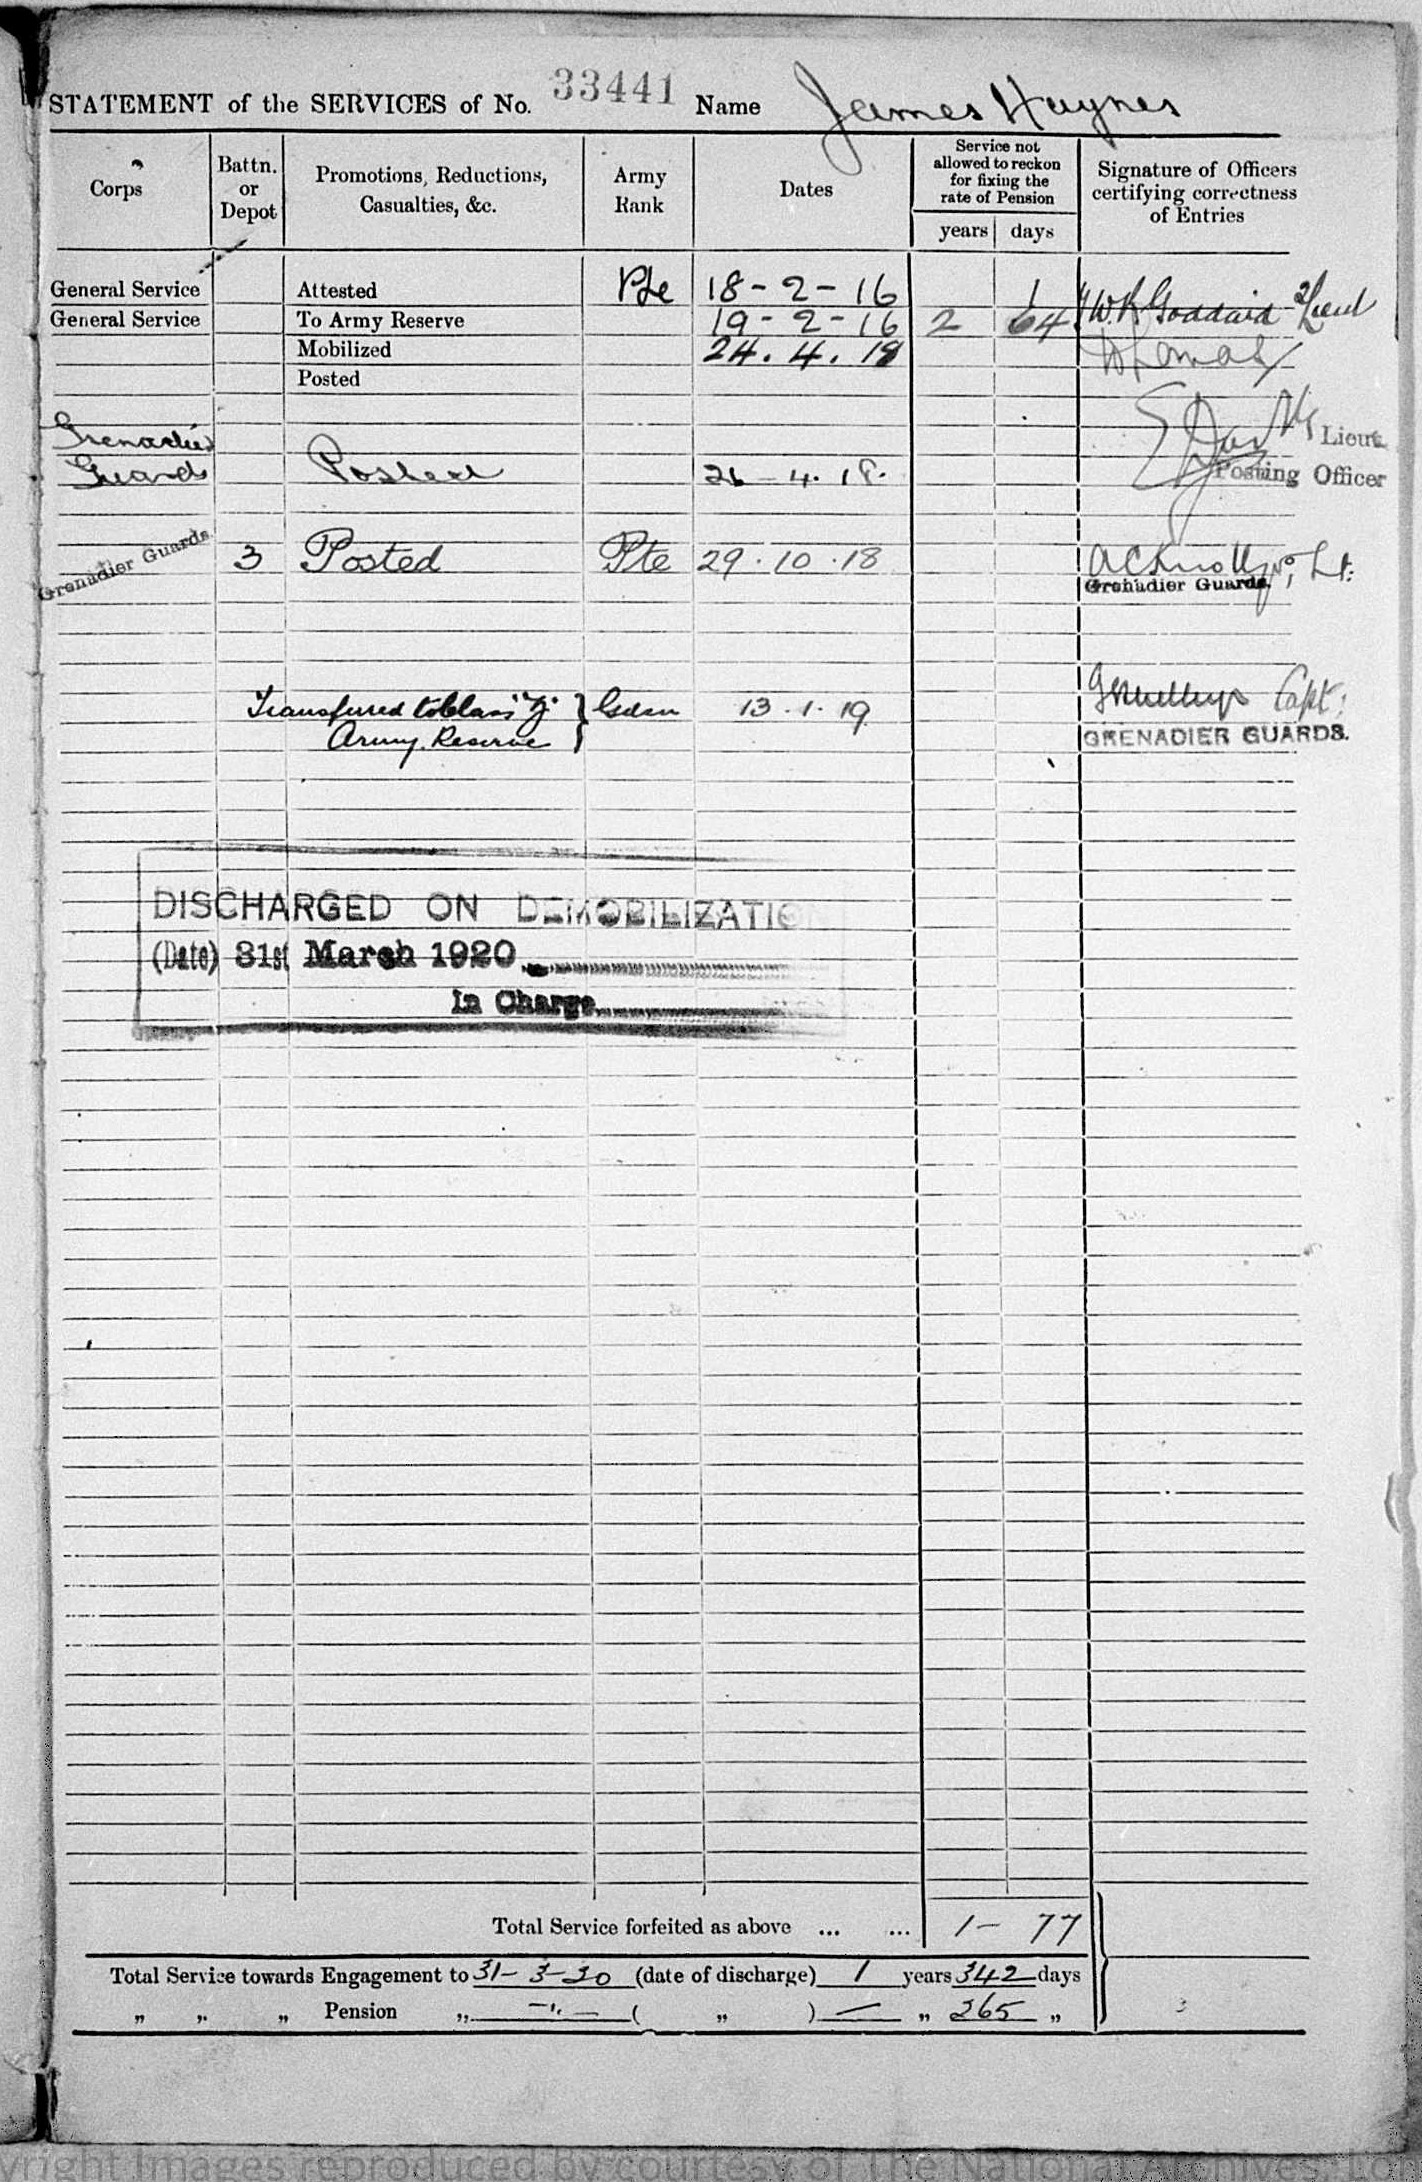 STATEMENT of the SERVICES of No. 33441 Name James Haynes
Corps
Battn. or Depot
Promotions, Reductions, Casualties, &c.
Army Rank
Dates
Service not allowed to reckon for fixing the rate of Pension
years days
Signature of Officers certifying correctness of Entries
General Service Attested Pte 18-2-16 1 W. H. Goddard 2/Lieut
General Service To Army Reserve 19-2-16 2 64
Mobilized 24.4.18
Posted
Grenadier
Guards Posted 26-4.18. Lieut
Posting Officer
Grenadier Guards 3 Posted Pte 29.10.18 Lt.
Grenadier Guards.
Transferred to Class "Z" } Gdsn 13.1.19 Capt:
Army Reserve
GRENADIER GUARDS.
DISCHARGED ON DEMOBILIZATION
(Date) 31st March 1920
In Charge
Total Service forfeited as above ... ... 1- 77
Total Service towards Engagement to 31-3-20 (date of discharge) 1 years 342 days
„ „ „ Pension „ -"- ( „ ) — „ 265 „
yright Images reproduced by courtesy of The National Archives, Lon